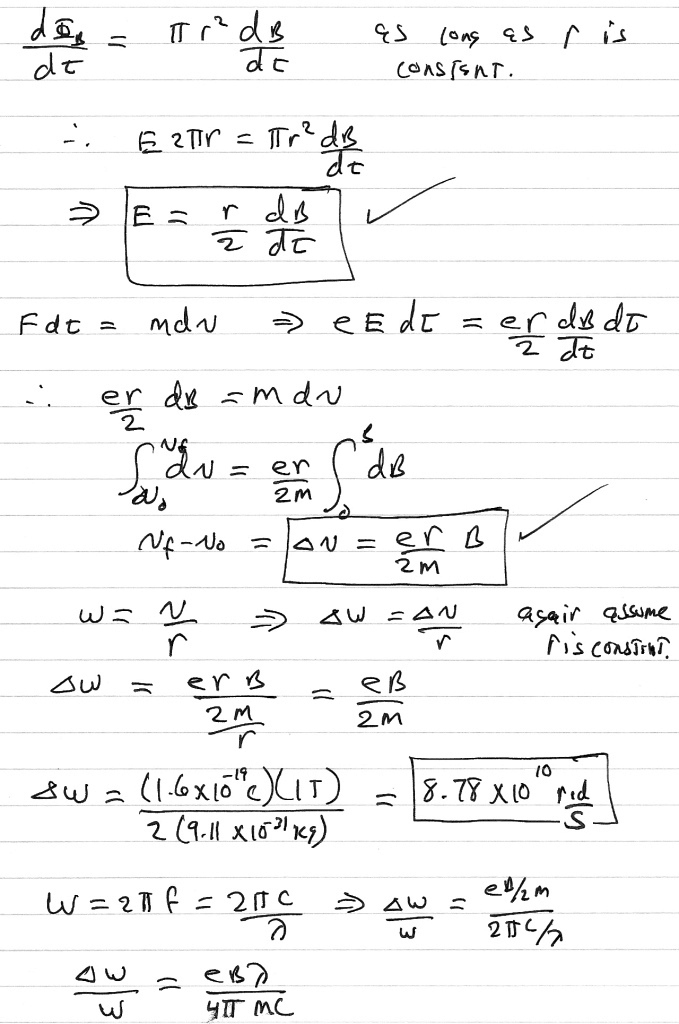 dΦ_B/dt = πr² dB/dt as long as r is constant.
∴ E 2πr = πr² dB/dt
⇒ E = r/2 dB/dt ✓
Fdt = mdv ⇒ eEdt = er/2 dB/dt dt
∴ er/2 dB = mdv
∫_{v₀}^{v_f} dv = er/2m ∫_0^B dB
v_f - v₀ = Δv = er/2m B ✓
ω = v/r ⇒ Δω = Δv/r again assume r is constant.
Δω = (erB/2m)/r = eB/2m
Δω = (1.6x10⁻¹⁹ C)(1T)/2(9.11x10⁻³¹ kg) = 8.78x10¹⁰ rad/s
ω = 2πf = 2πc/λ ⇒ Δω/ω = (eB/2m)/(2πc/λ)
Δω/ω = eBλ/4πmc